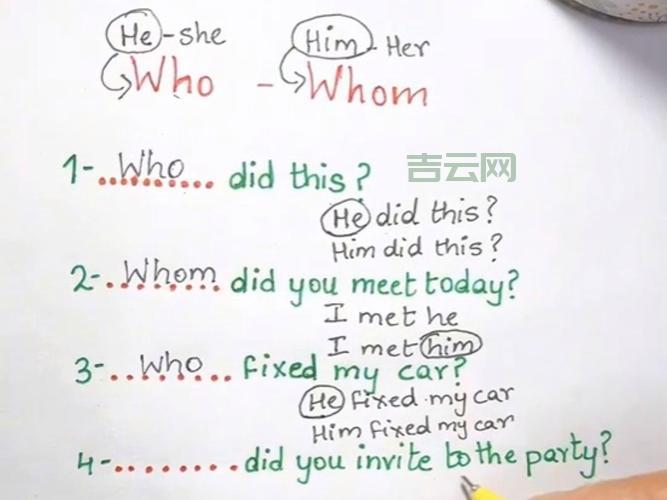 He - she Him - Her
Who - Whom
1- ..Who.. did this?
吉云网
He did this?
Him did this?
2- .Whom. did you meet today?
I met he
I met him
3- ..Who.. fixed my car?
He fixed my car
Him fixed my car
4- ......... did you invite to the party?